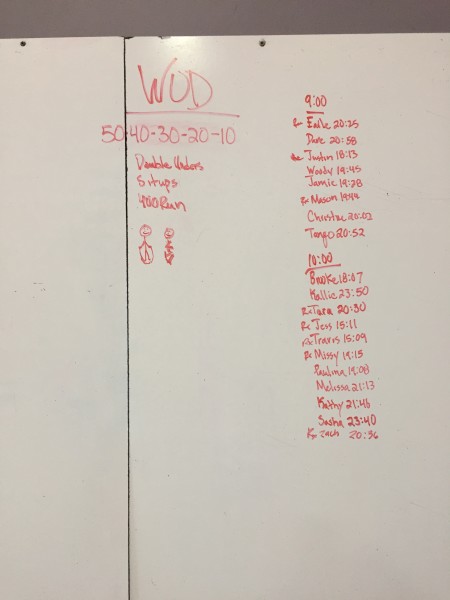 WOD
50-40-30-20-10
Double Unders
Situps
400 Run
9:00
Rx Earle 20:25
Dave 20:58
Rx Justin 18:13
Woody 19:45
Jamie 19:28
Rx Mason 19:44
Christine 20:02
Tango 20:52
10:00
Brooke 18:07
Kallie 23:50
Rx Tara 20:30
Rx Jess 15:11
Rx Travis 15:09
Rx Missy 19:15
Paulina 19:08
Melissa 21:13
Kathy 21:46
Sasha 23:40
Rx Zach 20:36